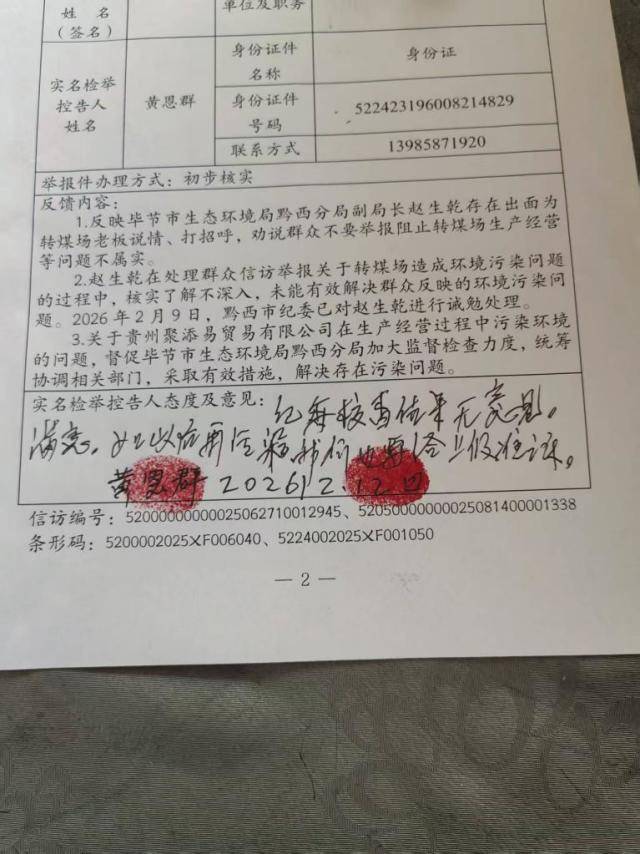 姓 名
单位及职务
(签名)
实名检举
控告人
姓名
黄恩群
身份证件
名称
身份证
身份证件
号码
522423196008214829
联系方式
13985871920
举报件办理方式：初步核实
反馈内容：
1.反映毕节市生态环境局黔西分局副局长赵生乾存在出面为
转煤场老板说情、打招呼，劝说群众不要举报阻止转煤场生产经营
等问题不属实。
2.赵生乾在处理群众信访举报关于转煤场造成环境污染问题
的过程中，核实了解不深入，未能有效解决群众反映的环境污染问
题。2026年2月9日，黔西市纪委已对赵生乾进行诫勉处理。
3.关于贵州聚添易贸易有限公司在生产经营过程中污染环境
的问题，督促毕节市生态环境局黔西分局加大监督检查力度，统筹
协调相关部门，采取有效措施，解决存在污染问题。
实名检举控告人态度及意见：纪委核查结果无意见。
满意。如以后再
黄恩群 2026.2.12日
信访编号：52000000000025062710012945、52050000000025081400001338
条形码：5200002025XF006040、5224002025XF001050
— 2 —